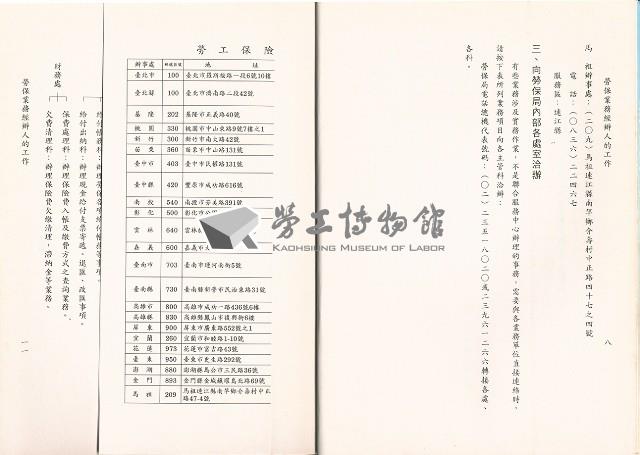 勞保業務經辦人的工作
八
馬　祖辦事處：（二○九）馬祖連江縣南竿鄉介壽村中正路四十七之四號
電　話：（○八三六）二二四六七
服務區：連江縣
三、向勞保局內部各處室洽辦
有些業務涉及實務作業，不是聯合服務中心辦理的事務，需要與各業務單位直接連絡時，
請按下表所列業務項目向各主管科洽辦：
勞保局電話總機代表號碼：（○二）二三五一八○二○或二三九六一二六六轉接各處、
各科。
勞工保險
辦事處 郵遞區號 地址
臺北市 100 臺北市羅斯福路一段6號10樓
臺北縣 100 臺北市濟南路二段42號
基隆 202 基隆市正義路40號
桃園 330 桃園市中山東路9號7樓之1
新竹 300 新竹市南大路42號
苗栗 360 苗栗市中山路131號
臺中市 403 臺中市民權路131號
臺中縣 420 豐原市成功路616號
南投 540 南投市芳美路391號
彰化 500 彰化市公園
雲林 640 雲林
嘉義 600 嘉義市
臺南市 703 臺南市運河南街5號
臺南縣 730 臺南縣新營市民治東路31號
高雄市 800 高雄市成功一路436號6樓
高雄縣 830 高雄縣鳳山市復興街6樓
屏東 900 屏東市廣東路552號之1
宜蘭 260 宜蘭市和睦路1-10號
花蓮 973 花蓮市富吉路43號
臺東 950 臺東市更生路292號
澎湖 880 澎湖縣馬公市三民路36號
金門 893 金門縣金城鎮環島北路69號
馬祖 209 馬祖連江縣南竿鄉介壽村中正路47-4號
勞工博物館
KAOHSIUNG MUSEUM OF LABOR
給付出納科：辦理現金給付支票寄處、退匯、改匯事項。
財務處
保費處理科：辦理保險費入帳及繳費方式之查詢業務。
欠費清理科：辦理保險費欠繳清理，滯納金等業務。
勞保業務經辦人的工作
一一